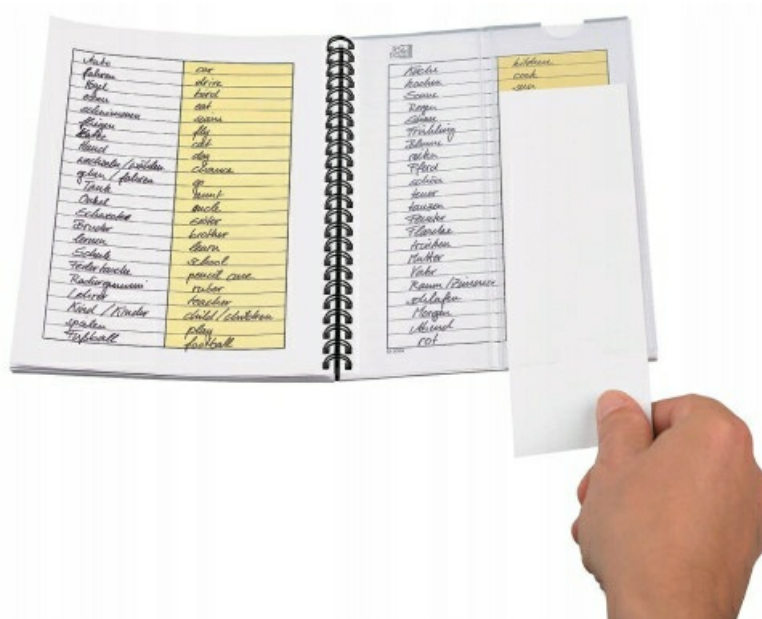 Auto car
fahren drive
Vogel bird
essen eat
schwimmen swim
fliegen fly
Katze cat
Hund dog
wechseln/wählen
gehen / fahren go
Tante aunt
Onkel uncle
Schwester sister
Bruder brother
lernen learn
Schule school
Federtasche pencil case
Radiergummi ruber
Lehrer teacher
Kind / Kinder child/children
spielen play
Fußball football
Küche kitchen
kochen cook
Sonne sun
Regen
Frühling
Blume
reiten
Pferd
schön
teuer
tanzen
Fenster
Flasche
trinken
Mutter
Vater
Raum / Zimmer
schlafen
Morgen
Abend
rot